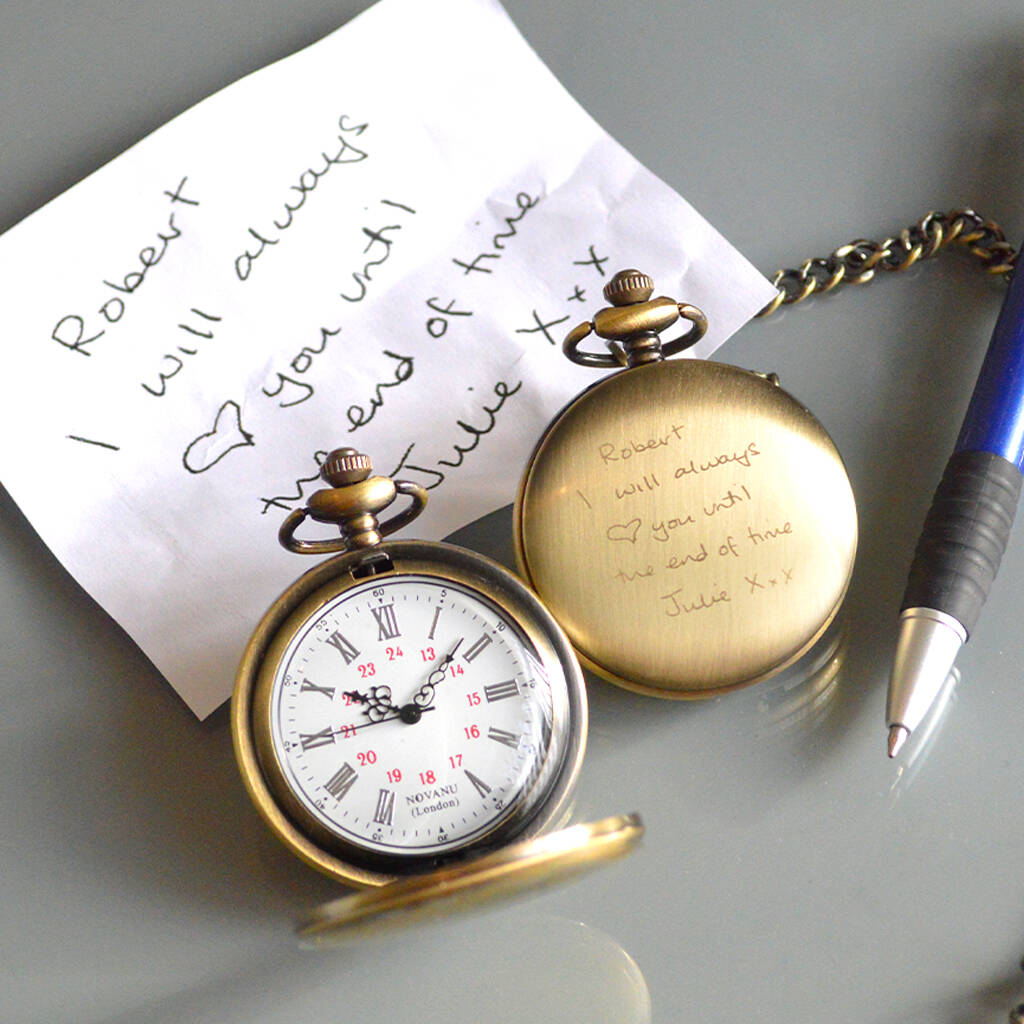 Robert
I will always
♡ you until
the end of time
Julie x x x
Robert
I will always
♡ you until
the end of time
Julie x x x
60
5
10
XII
I
II
III
IIII
V
VII
VIII
IX
X
XI
24
13
14
15
16
17
18
19
20
21
23
NOVANU
(London)